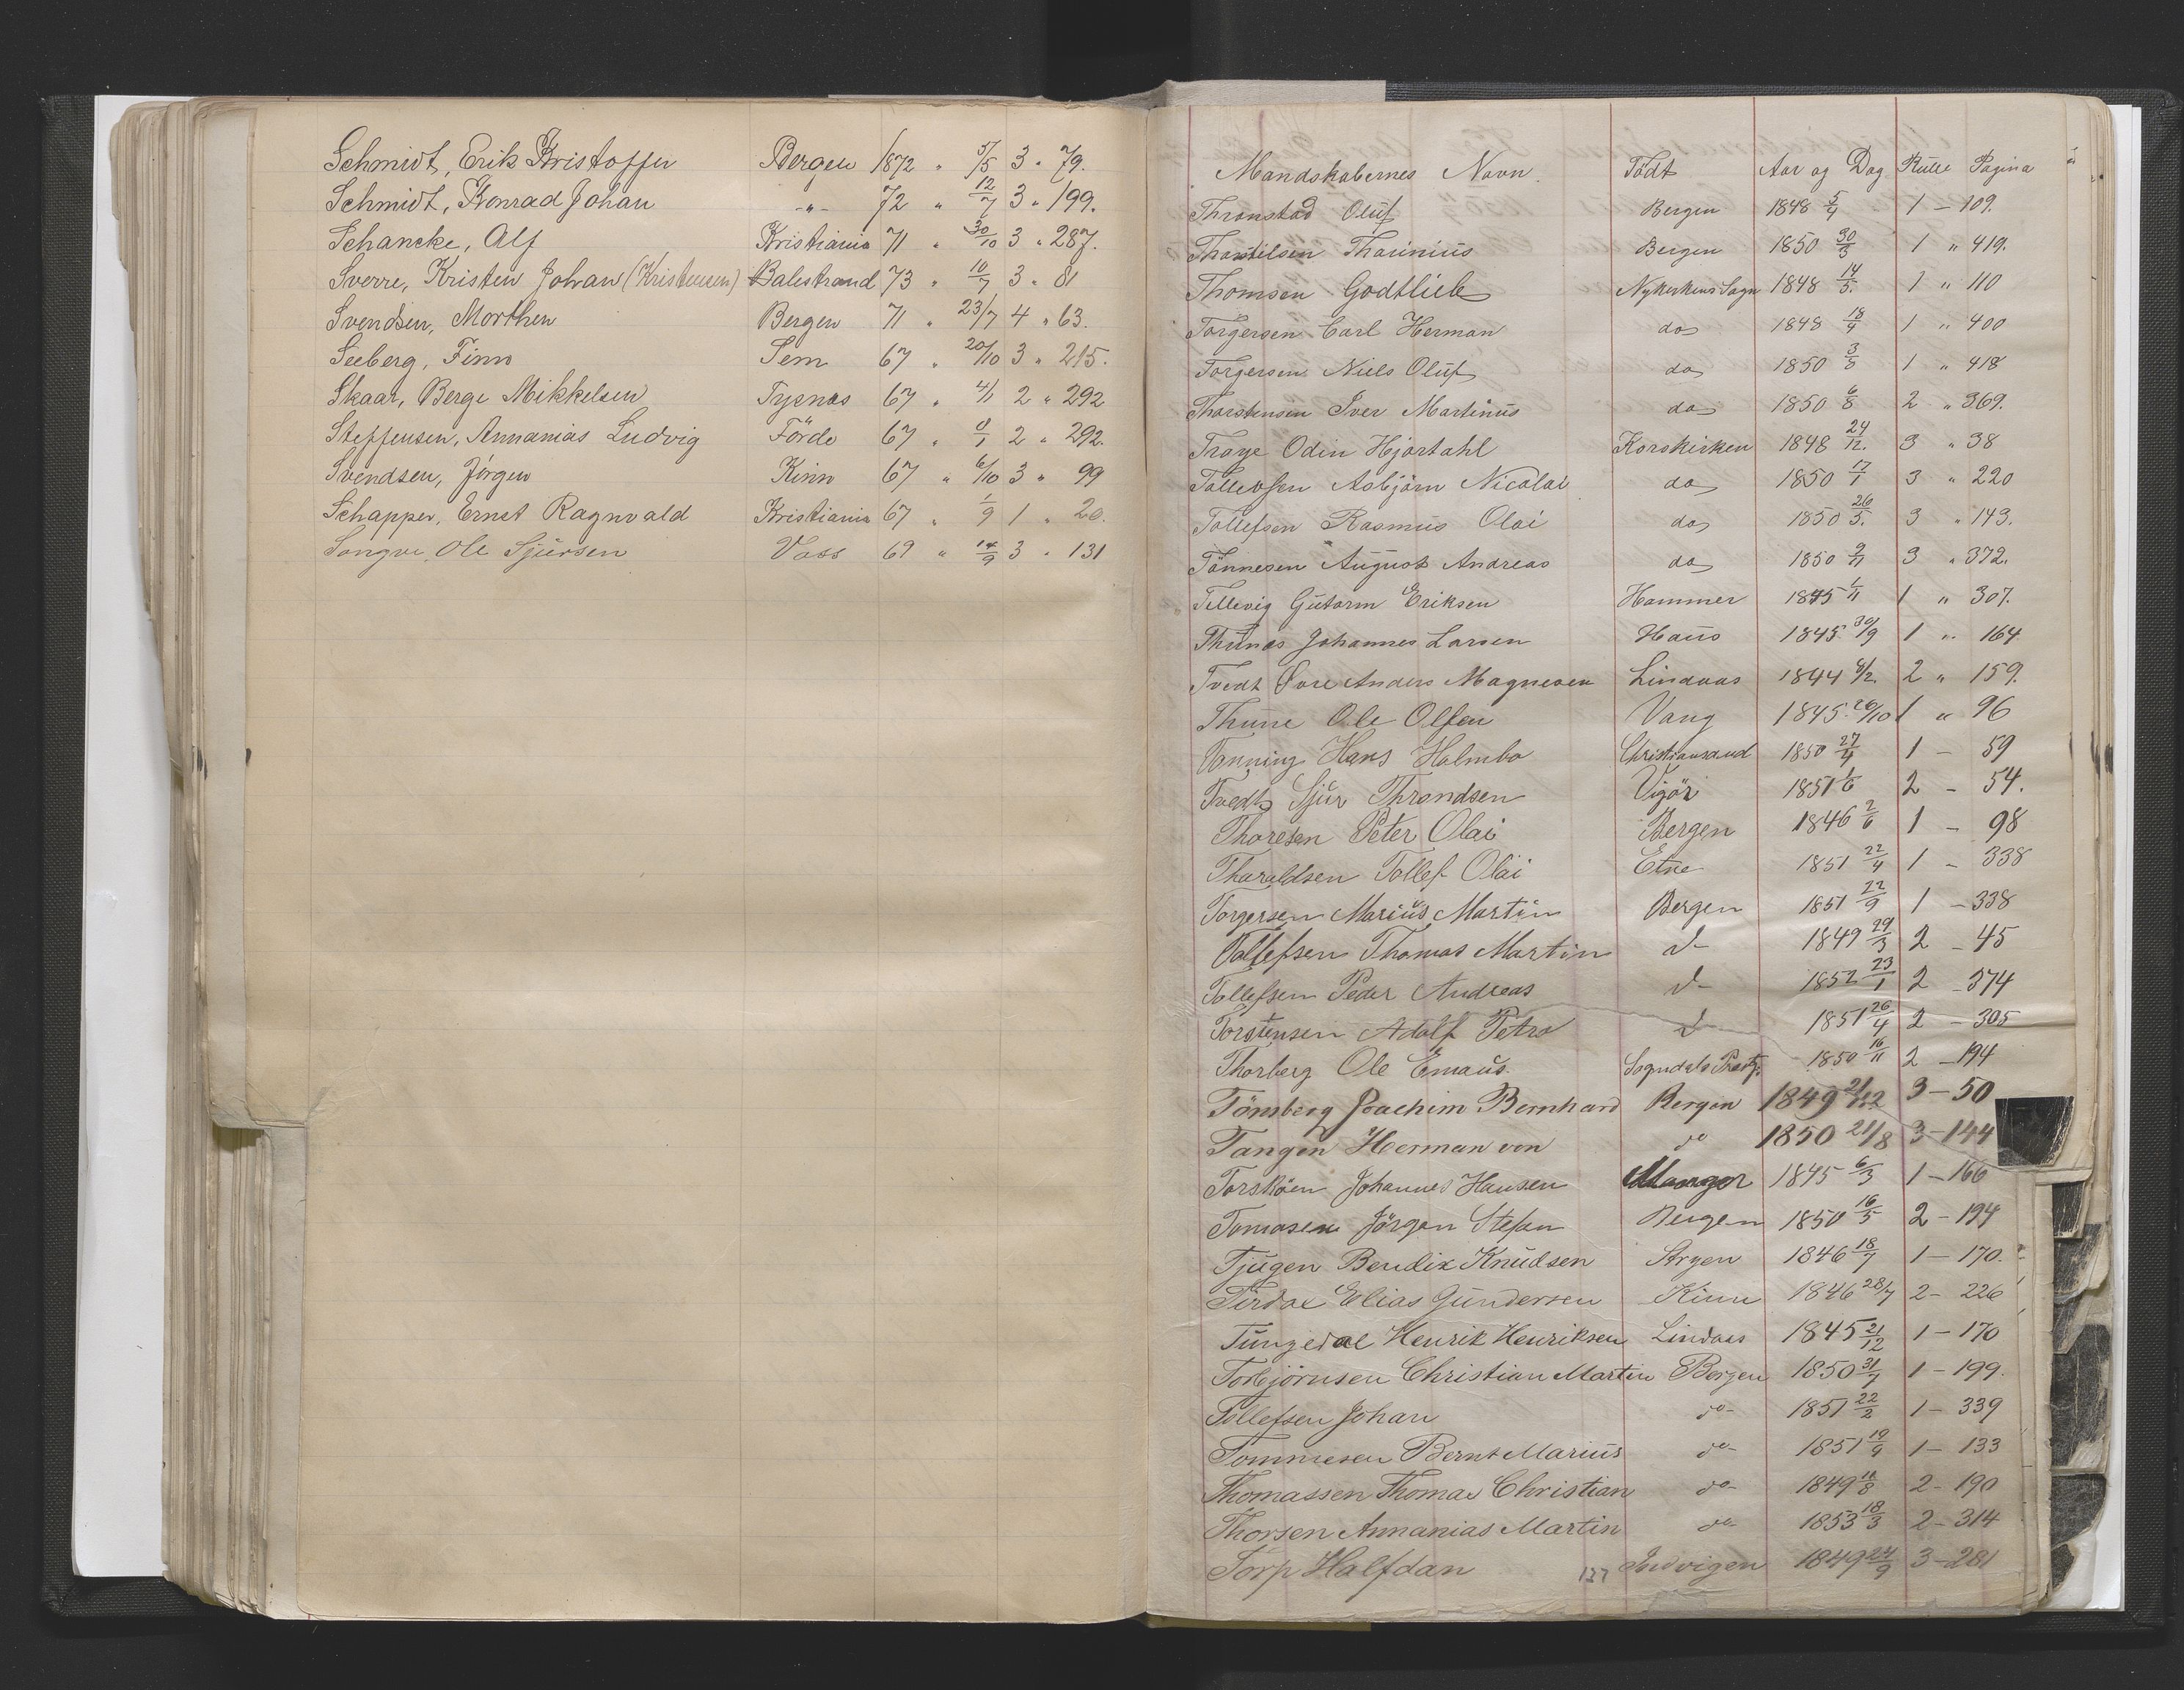 Schmidt, Erik Kristoffer Bergen 1872 " 5/5 3 " 79.
Schmidt, Konrad Johan -"- 72 " 12/7 3 " 199.
Schancke, Alf Kristiania 71 " 30/10 3 " 287.
Sverre, Kristen Johan (Kristensen) Balestrand 73 " 10/7 3 " 81
Svendsen, Morthen Bergen 71 " 23/7 4 " 63.
Seeberg, Finn Sem 67 " 20/10 3 " 215.
Skaar, Berge Mikkelsen Tysnæs 67 " 4/1 2 " 292
Steffensen, Annanias Ludvig Förde 67 " 8/1 2 " 292.
Svendsen, Jörgen Kinn 67 " 6/10 3 " 99
Schapper, Ernst Ragnvald Kristiania 67 " 1/9 1 " 20.
Songve, Ole Sjursen Voss 69 " 14/9 3 " 131
Mandskabernes Navn. Födt Aar og Dag Rulle Pagina
Thronstad Oluf Bergen 1848 5/4 1 - 109.
Bergen 1850 30/3 1 " 419.
Thomsen Godtlieb Nykirkens Sogn 1848 14/5. 1 " 110
Torgersen Carl Herman do 1848 18/9 1 " 400
Torgersen Niels Oluf do 1850 3/8 1 " 418
Thorstensen Iver Martinus do 1850 6/8 2 " 369.
Traye Odin Hjortahl Korskirken 1848 24/12. 3 " 38
Tollevsen Asbjörn Nicolai do 1850 17/1 3 " 220
Tollefsen Rasmus Olai do 1850 26/5. 3 " 143.
Tönnesen August Andreas do 1850 9/11 3 " 372.
Tellevig Gutorm Eriksen Hammer 1845 1/11 1 " 307.
Thunes Johannes Larsen Haus 1845 30/9 1 " 164
Tvedt Øvre Anders Magnesen Lindaas 1844 8/2. 2 " 159.
Thune Ole Olsen Vang 1845. 26/10 1 " 96
Tønning Hans Holmbo Christiansand 1850 27/4 1 - 59
Tvedt Sjur Throndsen Vigör 1851 1/6 2 - 54.
Thoresen Peter Olai Bergen 1846 2/6 1 - 98
Tharaldsen Tollef Olai Etne 1851 22/4 1 - 338
Torgersen Marius Martin Bergen 1851 22/9 1 - 338
Tollefsen Thomas Martin d- 1849 29/3 2 - 45
Tollefsen Peder Andreas d- 1852 23/1 2 - 374
Torstensen Adolf Petro d- 1851 26/4 2 - 305
Thorberg Ole Emaus. Sogndals Prstg. 1850 16/11 2 - 194
Tönsberg Joachim Bernhard Bergen 1849 21/12 3 - 50
Tangen Herman von do 1850 21/8 3 - 144
Torsköen Johannes Hansen Manger 1845 6/3 1 - 166
Tomasen Jörgen Stefen Bergen 1850 16/5 2 - 194
Tjugen Bendix Knudsen Stryen 1846 18/7 1 - 170.
Tirdal Elias Gundersen Kinn 1846 28/7 2 - 226
Tungedal Henrik Henriksen Lindaas 1845 21/12 1 - 170
Torbjörnsen Christian Martin Bergen 1850 31/7 1 - 199.
Tollefsen Johan do- 1851 22/2 1 - 339
Tommesen Bernt Marius do- 1851 19/9 1 - 133
Thomassen Thomas Christian do- 1849 11/8 2 - 190
Thorsen Annanias Martin do- 1853 18/3 2 - 314
Torp Halfdan 137 Indvigen 1849 24/9 3 - 281